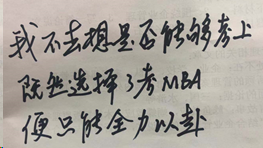 我不去想是否能够考上
既然选择了考MBA
便只能全力以赴